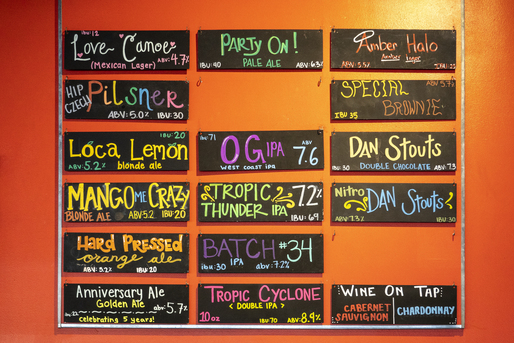 IBU:12
Love Canoe
(Mexican Lager) ABV: 4.7%
HIP CZECH Pilsner
ABV: 5.0% IBU:30
IBU:20
Loca Lemon
ABV: 5.2% blonde ale
MANGO ME CRAZY
BLONDE ALE ABV 5.2 IBU:20
HARD PRESSED
orange ale
ABV: 5.2% IBU:20
Anniversary Ale
Golden Ale abv: 5.7%
celebrating 5 years!
PARTY ON!
IBU:40 PALE ALE ABV: 6.3%
IBU:71
OG IPA ABV 7.6
west coast ipa
TROPIC 7.2%
THUNDER IPA IBU:69
BATCH #34
ibu:30 IPA abv: 7.2%
TROPIC CYCLONE
< DOUBLE IPA >
10oz IBU:70 ABV: 8.9%
Amber Halo
Amber Lager
SPECIAL
BROWNIE
IBU 35
DAN STOUTS
IBU:30 DOUBLE CHOCOLATE ABV 7.3
Nitro DAN STOUTS
ABV 7.3% IBU:30
WINE ON TAP
CABERNET SAUVIGNON CHARDONNAY